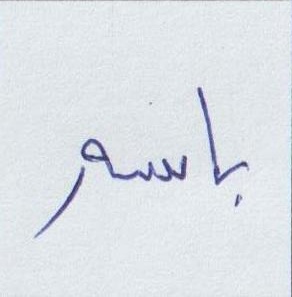 باسم